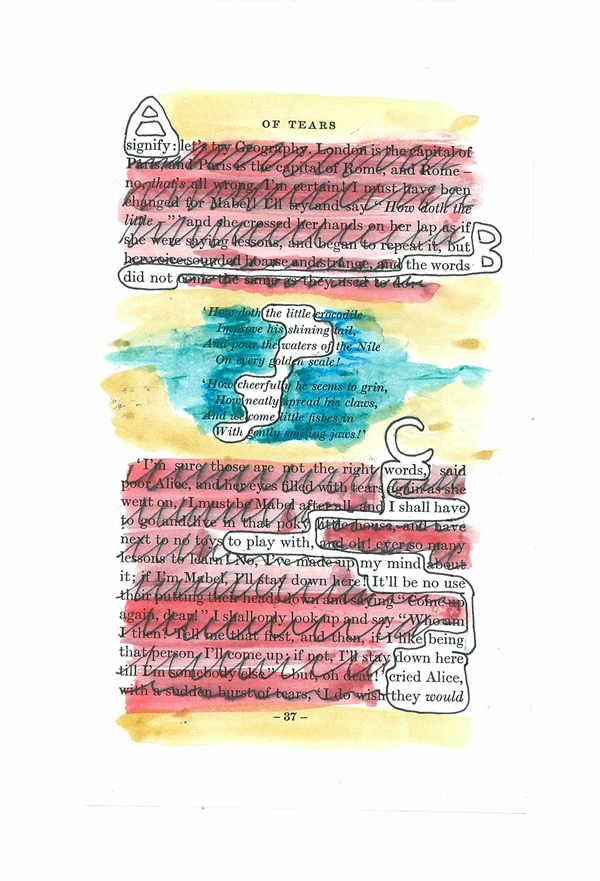 A
OF TEARS
signify: let's try Geography. London is the capital of
Paris, and Paris is the capital of Rome, and Rome –
no, that's all wrong, I'm certain! I must have been
changed for Mabel! I'll try and say "How doth the
little –"' and she crossed her hands on her lap as if
she were saying lessons, and began to repeat it, but
B
her voice sounded hoarse and strange, and the words
did not come the same as they used to do: –
'How doth the little crocodile
Improve his shining tail,
And pour the waters of the Nile
On every golden scale!
'How cheerfully he seems to grin,
How neatly spread his claws,
And welcome little fishes in
With gently smiling jaws!'
C
'I'm sure those are not the right words,' said
poor Alice, and her eyes filled with tears again as she
went on, 'I must be Mabel after all, and I shall have
to go and live in that poky little house, and have
next to no toys to play with, and oh! ever so many
lessons to learn! No, I've made up my mind about
it; if I'm Mabel, I'll stay down here! It'll be no use
their putting their heads down and saying "Come up
again, dear!" I shall only look up and say "Who am
I then? Tell me that first, and then, if I like being
that person, I'll come up; if not, I'll stay down here
till I'm somebody else" – but, oh dear!' cried Alice,
with a sudden burst of tears, 'I do wish they would
– 37 –